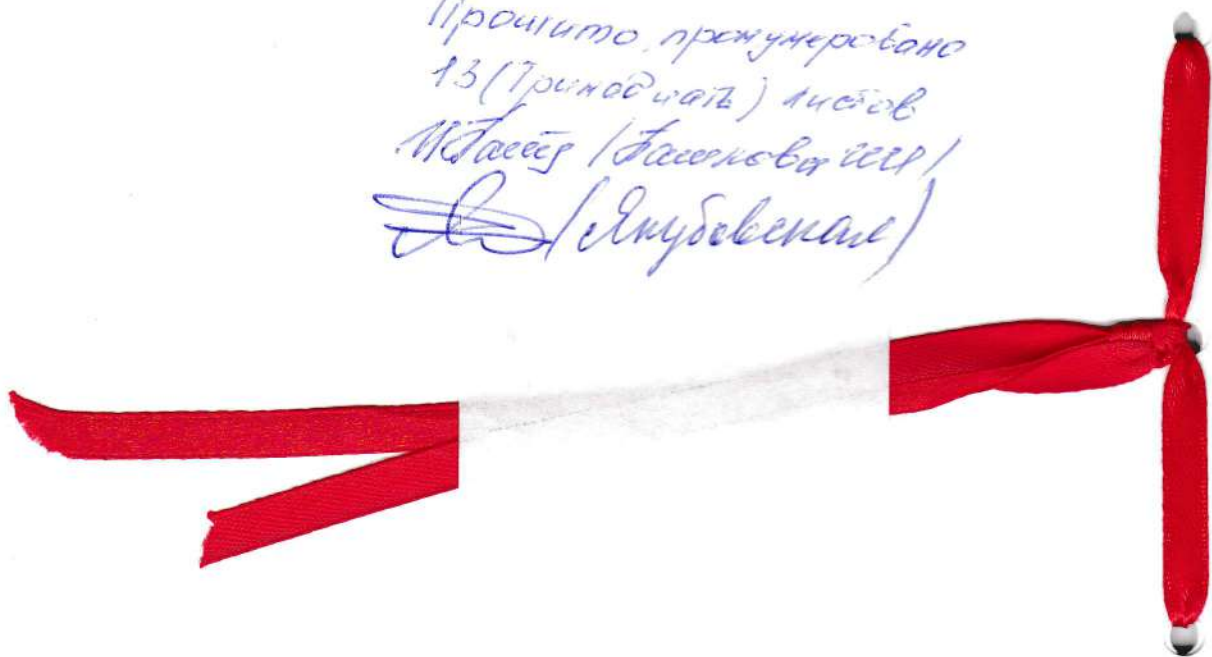 Прошито, пронумеровано
13 (Тринадцать) листов
(Якубовская)